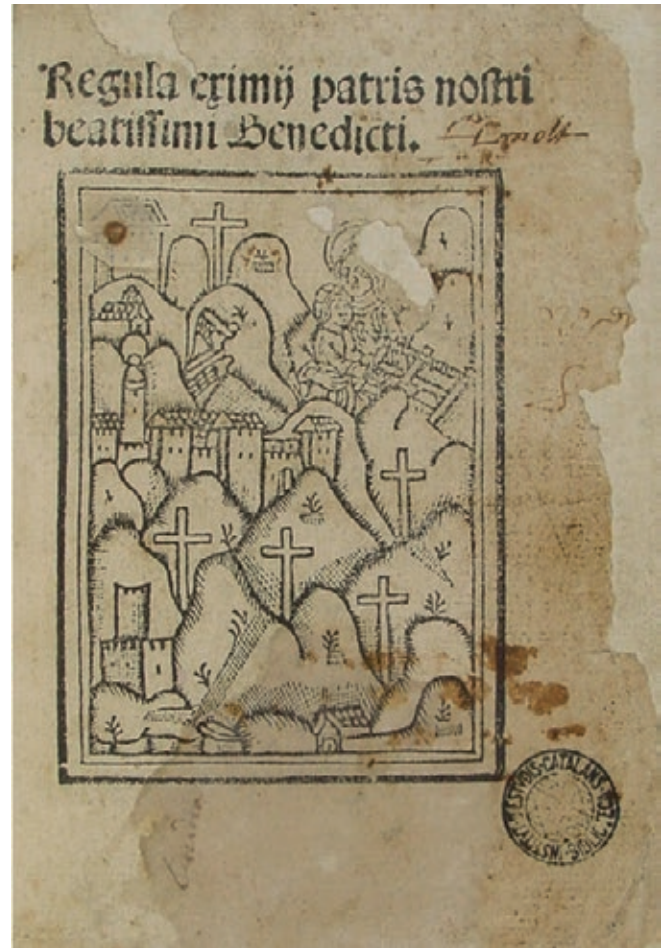 Regula eximij patris nostri
beatissimi Benedicti.
ESTVDIS·CATALANS